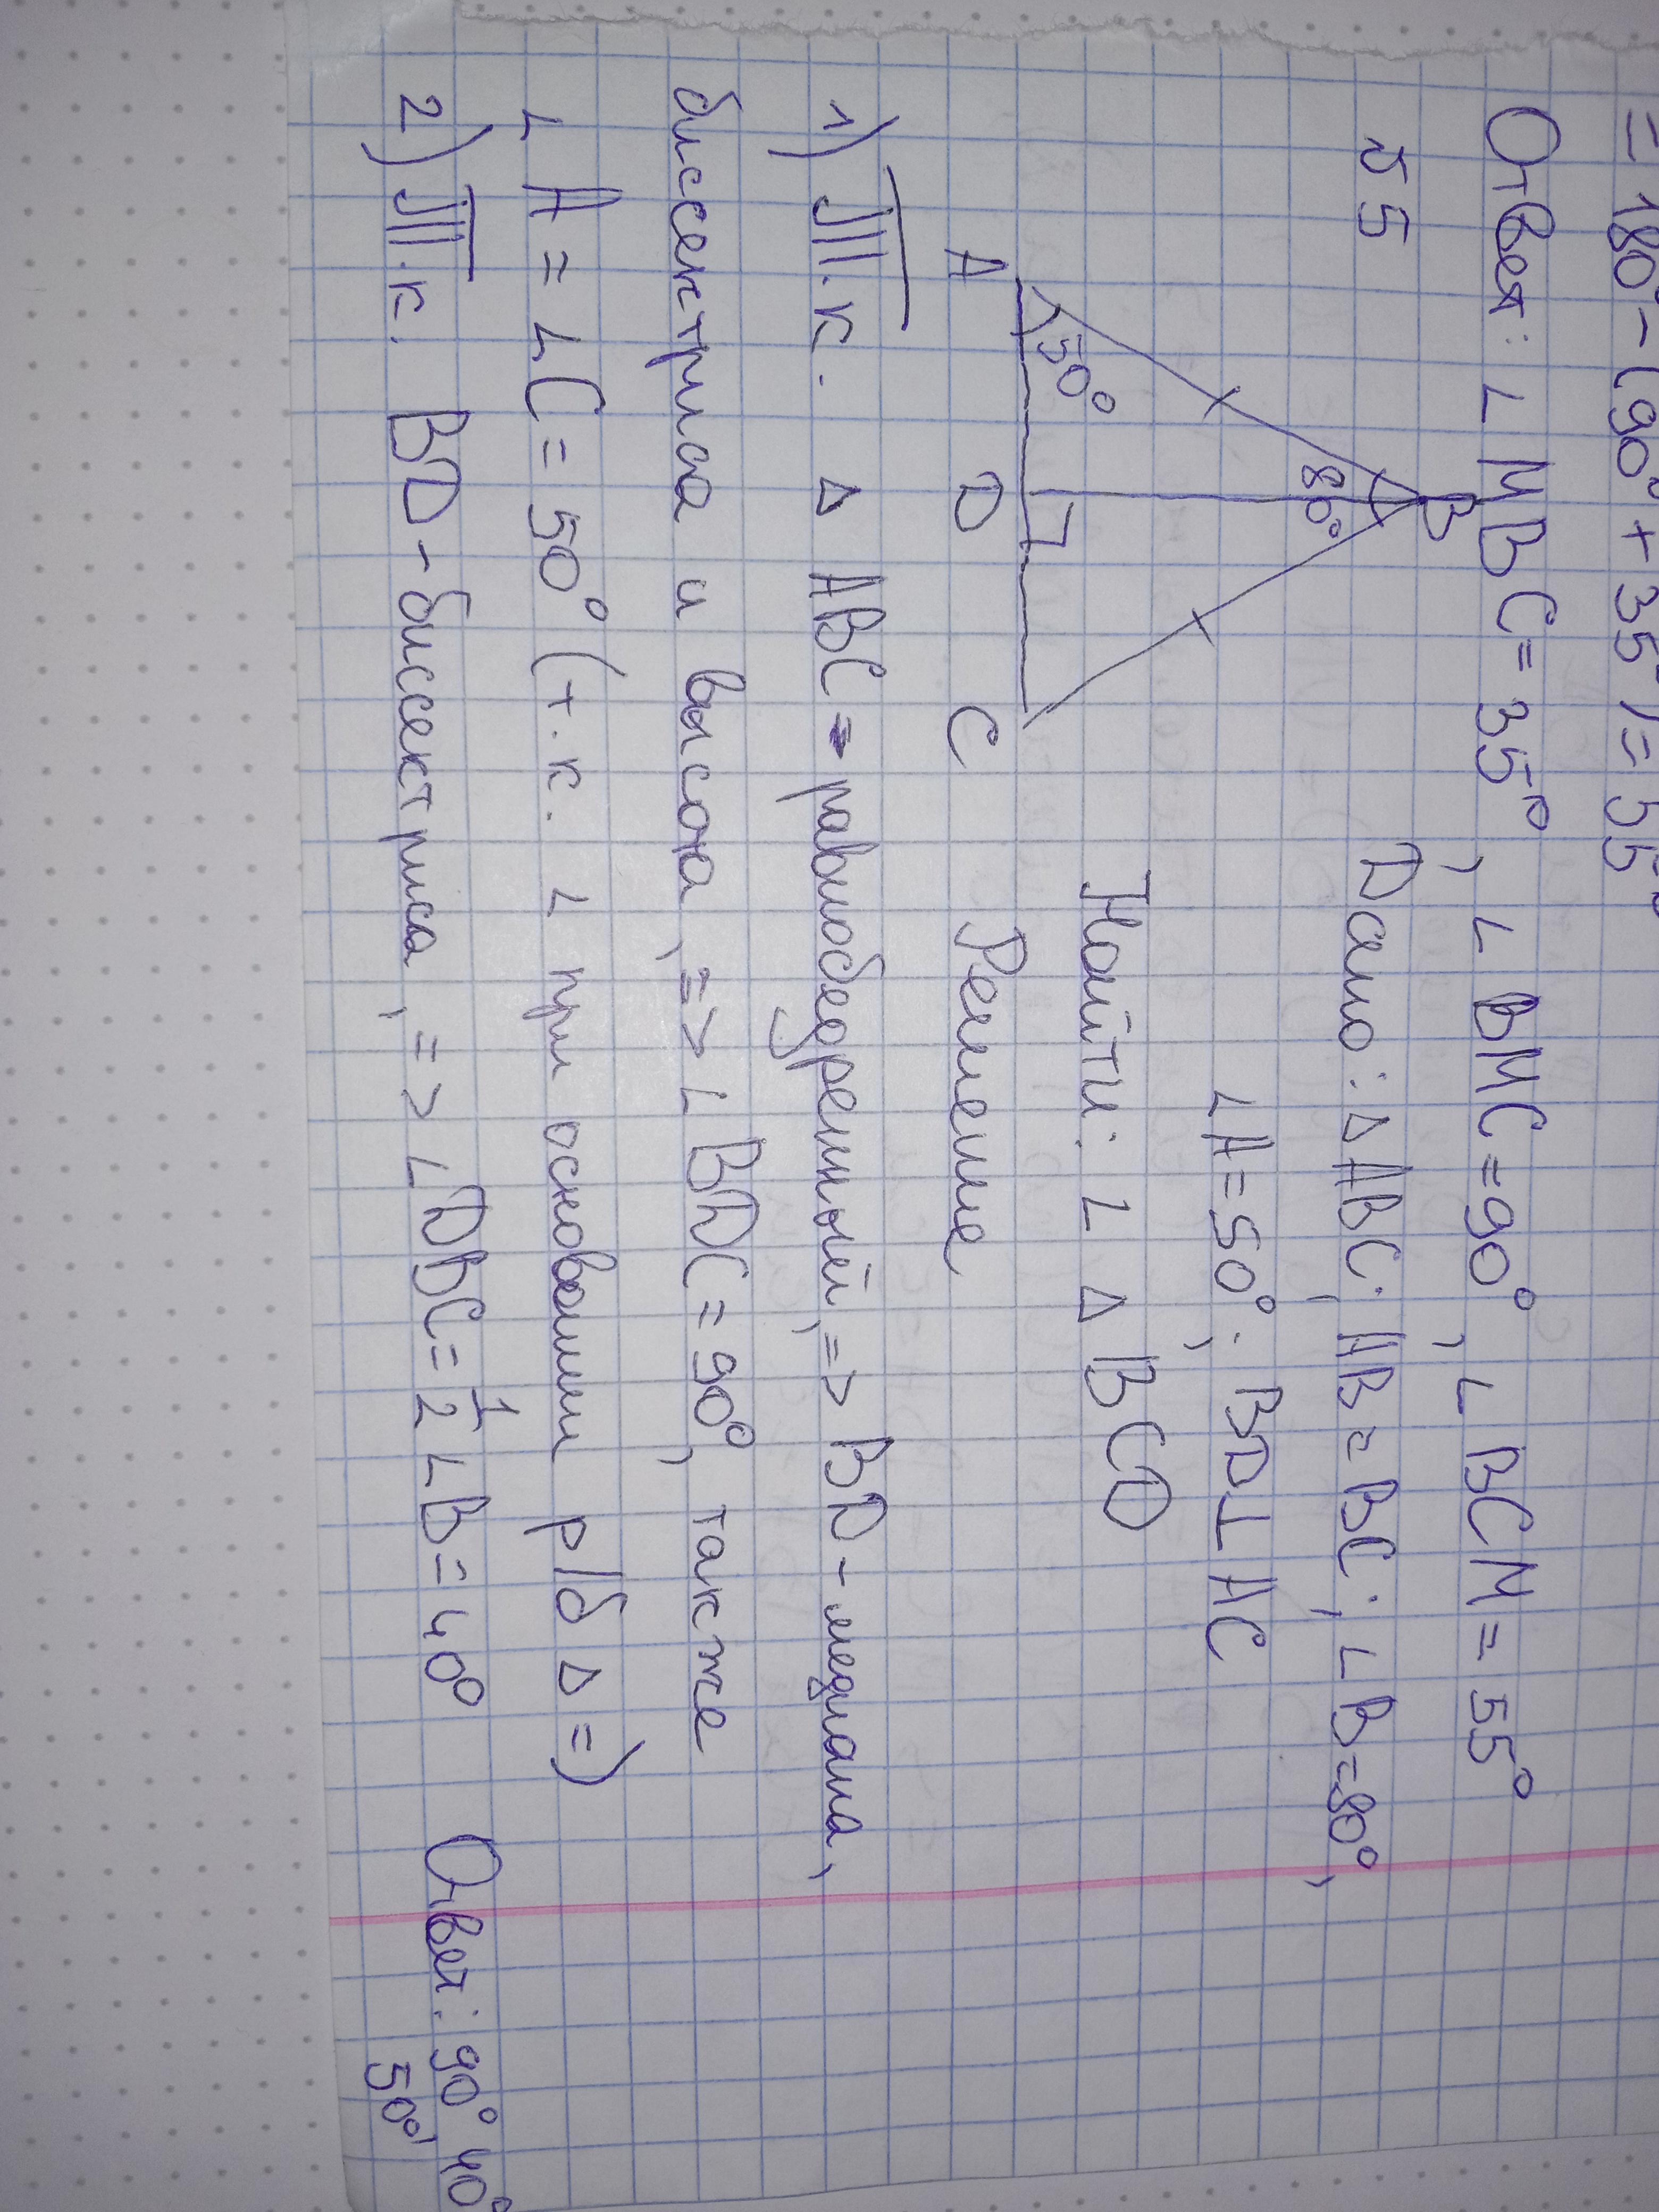 = 180° - (90° + 35°) = 55°
Ответ: ∟MBC = 35°, ∟BMC = 90°, ∟BCM = 55°
№5
Дано: △ABC; AB = BC; ∟B = 80°,
∟A = 50°; BD⊥AC
Найти: ∟ △ BCD
B
80°
50°
A D C
Решение
1) Т.к. △ ABC - равнобедренный, => BD - медиана,
биссектриса и высота, => ∟BDC = 90°, также
∟A = ∟C = 50° (т.к. ∟ при основании р/б △ =)
2) Т.к. BD - биссектриса, => ∟DBC = 1/2 ∟B = 40°
Ответ: 90° 40°
50°,